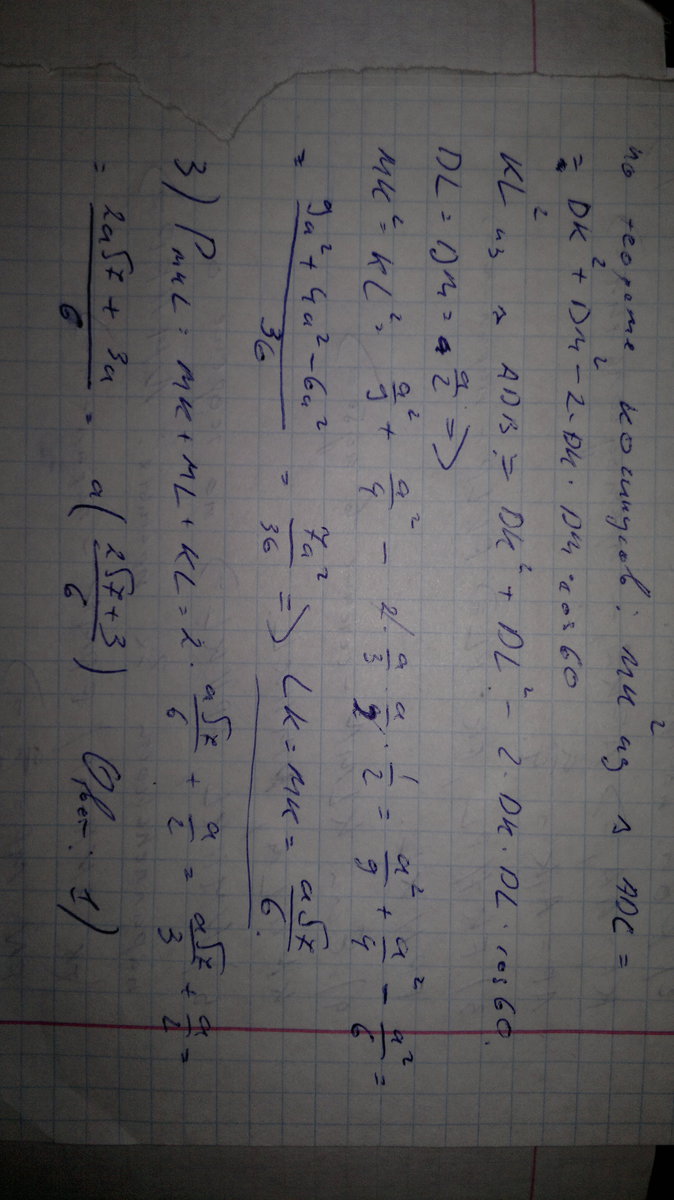 по теореме косинусов: MK² из △ ADC =
= DK² + DM² - 2·DK·DM·cos60
KL² из △ ADB = DK² + DL² - 2·DK·DL·cos60.
DL = DM = a/2 =>
MK² = KL² = a²/9 + a²/4 - 2·a/3·a/2·1/2 = a²/9 + a²/4 - a²/6 =
= 9a² + 4a² - 6a²/36 = 7a²/36 => LK = MK = a√7/6.
3) P MKL = MK + ML + KL = 2·a√7/6 + a/2 = a√7/3 + a/2 =
= 2a√7 + 3a/6 = a(2√7 + 3/6) Ответ: 1)